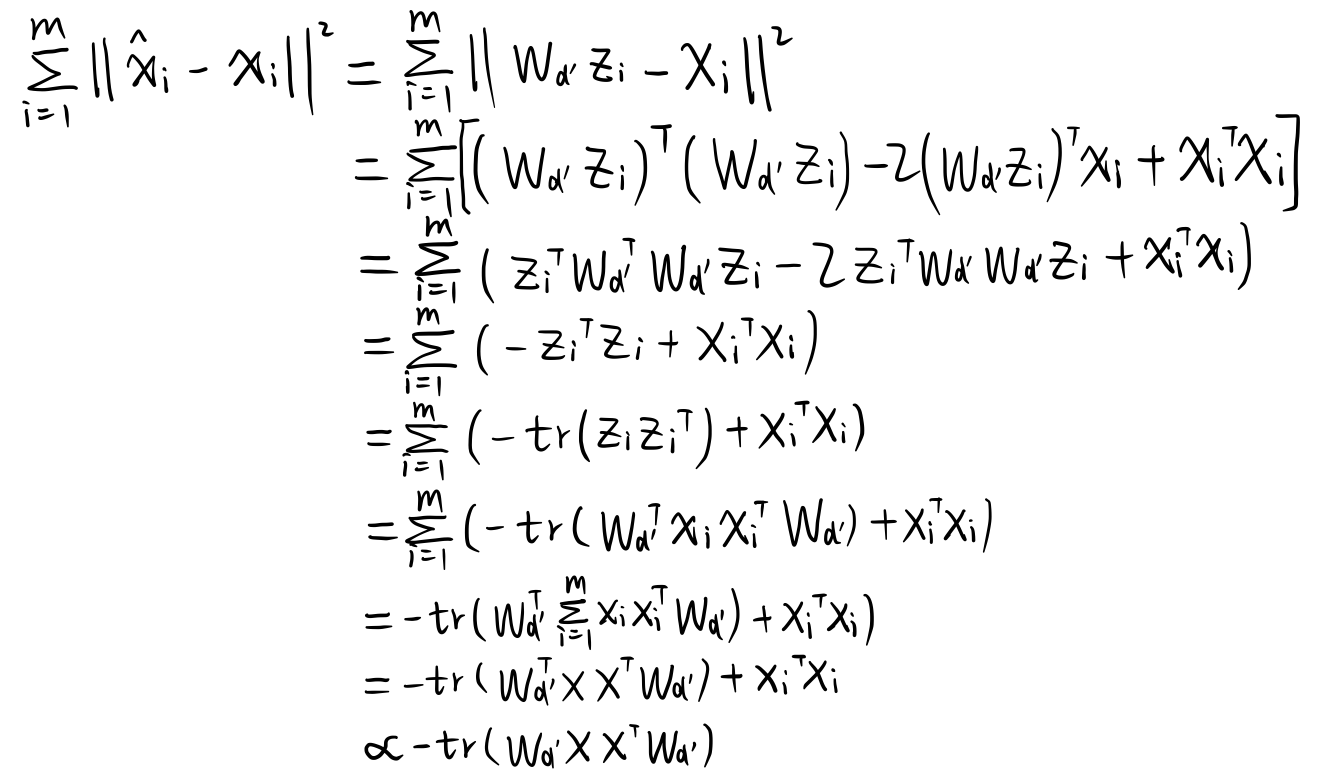 $\sum_{i=1}^{m} \| \hat{x}_i - x_i \|^2 = \sum_{i=1}^{m} \| W_{d'} z_i - x_i \|^2$
$= \sum_{i=1}^{m} [ (W_{d'} z_i)^T (W_{d'} z_i) - 2 (W_{d'} z_i)^T x_i + x_i^T x_i ]$
$= \sum_{i=1}^{m} ( z_i^T W_{d'}^T W_{d'} z_i - 2 z_i^T W_{d'} W_{d'} z_i + x_i^T x_i )$
$= \sum_{i=1}^{m} ( - z_i^T z_i + x_i^T x_i )$
$= \sum_{i=1}^{m} ( - tr(z_i z_i^T) + x_i^T x_i )$
$= \sum_{i=1}^{m} ( - tr( W_{d'}^T x_i x_i^T W_{d'} ) + x_i^T x_i )$
$= - tr( W_{d'}^T \sum_{i=1}^{m} x_i x_i^T W_{d'} ) + x_i^T x_i )$
$= - tr( W_{d'}^T X X^T W_{d'} ) + x_i^T x_i$
$\propto - tr( W_{d'} X X^T W_{d'} )$